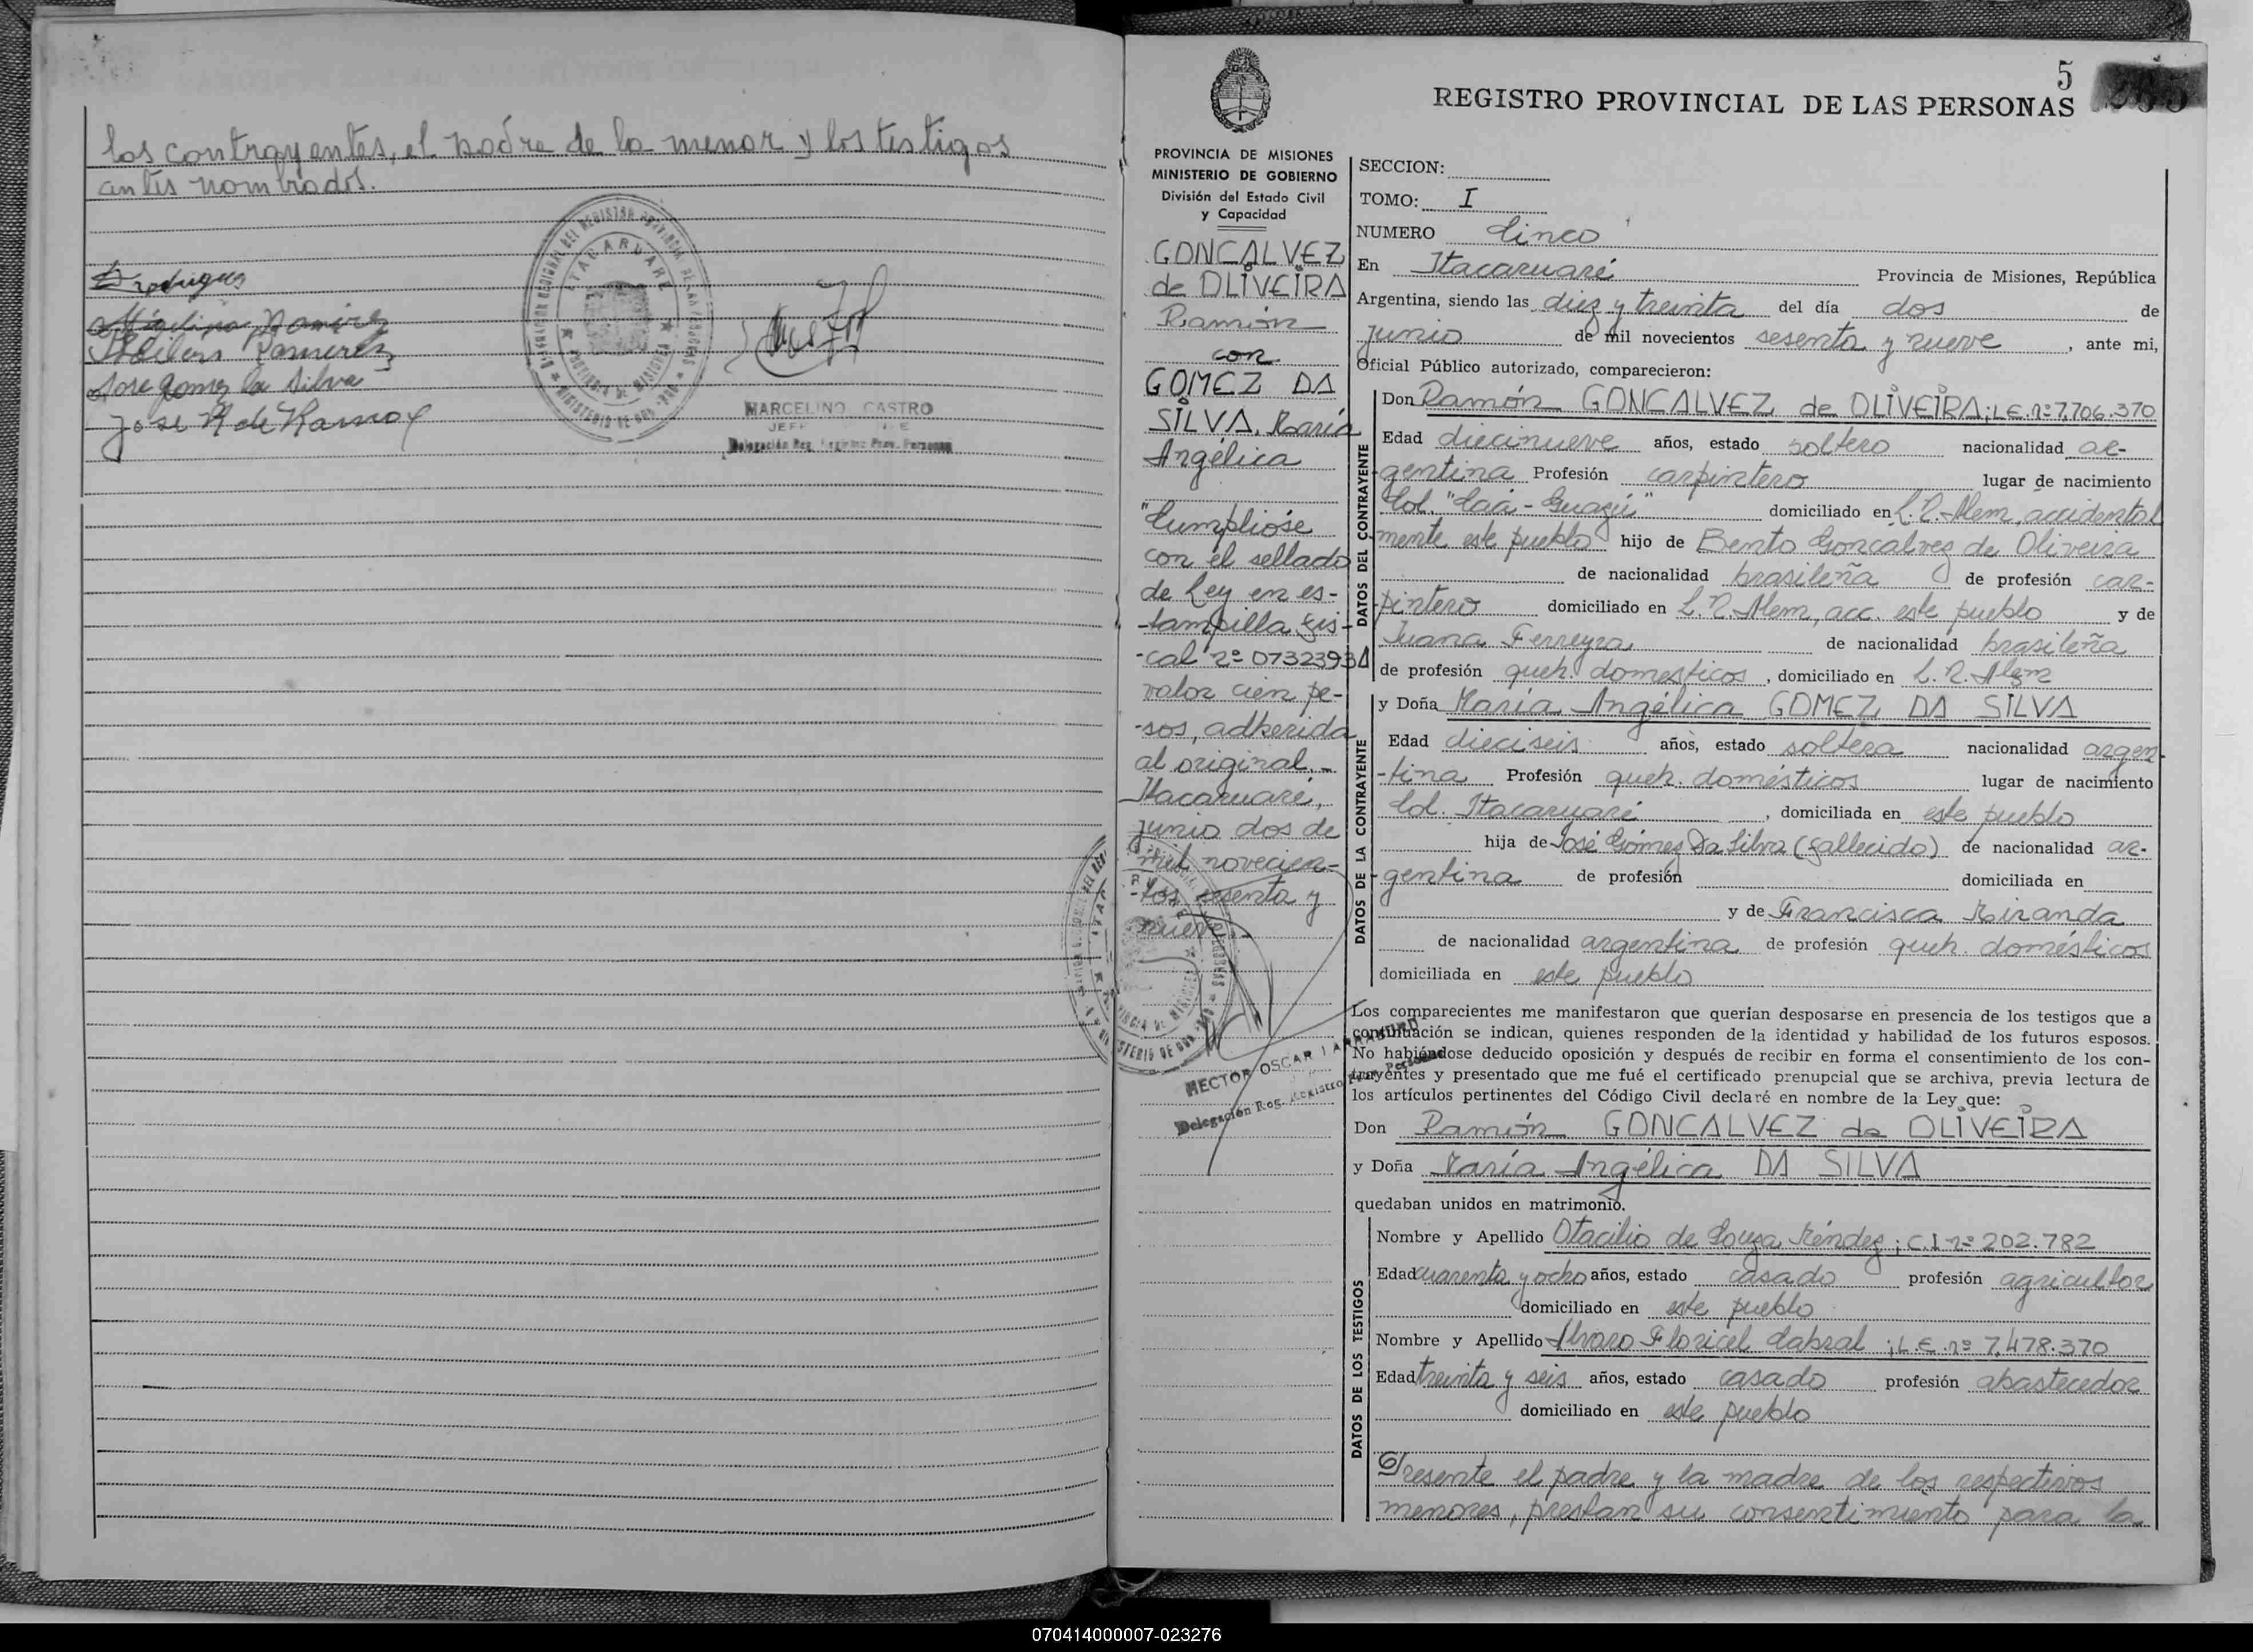 los contrayentes, el padre de la menor y los testigos
antes nombrados.
Rodriguez
Ramirez
Ramirez
Jose gomez da silva
Jose R de Ramos
ITACARUARE
MARCELINO CASTRO
JEFE
Delegación Reg. Registro Prov. Personas
5
REGISTRO PROVINCIAL DE LAS PERSONAS
PROVINCIA DE MISIONES
MINISTERIO DE GOBIERNO
División del Estado Civil
y Capacidad
GONCALVEZ
de OLIVEIRA
Ramón
con
GOMEZ DA
SILVA, María
Angélica
"Cumplióse
con el sellado
de Ley en es-
-tampilla fis-
-cal nº 07323934
valor cien pe-
-sos, adherida
al original.-
Itacaruaré,
junio dos de
mil novecien-
-tos sesenta y
nueve.-
HECTOR OSCAR
Delegación Reg. Registro Prov. Personas
SECCION:
TOMO: I
NUMERO Cinco
En Itacaruaré Provincia de Misiones, República
Argentina, siendo las diez y treinta del día dos de
junio de mil novecientos sesenta y nueve, ante mi,
Oficial Público autorizado, comparecieron:
DATOS DEL CONTRAYENTE
Don Ramón GONCALVEZ de OLIVEIRA; L.E. nº 7.706.370
Edad diecinueve años, estado soltero nacionalidad ar-
gentina Profesión carpintero lugar de nacimiento
Col. "Caá-Guazú" domiciliado en L.N. Alem, accidental
mente este pueblo hijo de Bento Goncalvez de Oliveira
de nacionalidad brasileña de profesión car-
pintero domiciliado en L.N. Alem, acc. este pueblo y de
Juana Ferreyra de nacionalidad brasileña
de profesión queh. domesticos, domiciliado en L.N. Alem
DATOS DE LA CONTRAYENTE
y Doña María Angélica GOMEZ DA SILVA
Edad dieciseis años, estado soltera nacionalidad argen-
-tina Profesión queh. domésticos lugar de nacimiento
Col. Itacaruaré, domiciliada en este pueblo
hija de José Gómez Da Silva (fallecido) de nacionalidad ar-
gentina de profesión domiciliada en
y de Francisca Miranda
de nacionalidad argentina de profesión queh. domésticos
domiciliada en este pueblo
Los comparecientes me manifestaron que querían desposarse en presencia de los testigos que a
continuación se indican, quienes responden de la identidad y habilidad de los futuros esposos.
No habiéndose deducido oposición y después de recibir en forma el consentimiento de los con-
trayentes y presentado que me fué el certificado prenupcial que se archiva, previa lectura de
los artículos pertinentes del Código Civil declaré en nombre de la Ley que:
Don Ramón GONCALVEZ de OLIVEIRA
y Doña María Angélica DA SILVA
quedaban unidos en matrimonio.
DATOS DE LOS TESTIGOS
Nombre y Apellido Otacilio de Souza Méndez; C.I nº 202.782
Edad cuarenta y ocho años, estado casado profesión agricultor
domiciliado en este pueblo
Nombre y Apellido Alvaro Floricel Cabral; L.E. nº 7.478.370
Edad treinta y seis años, estado casado profesión abastecedor
domiciliado en este pueblo
Presente el padre y la madre de los respectivos
menores, prestan su consentimiento para la
070414000007-023276